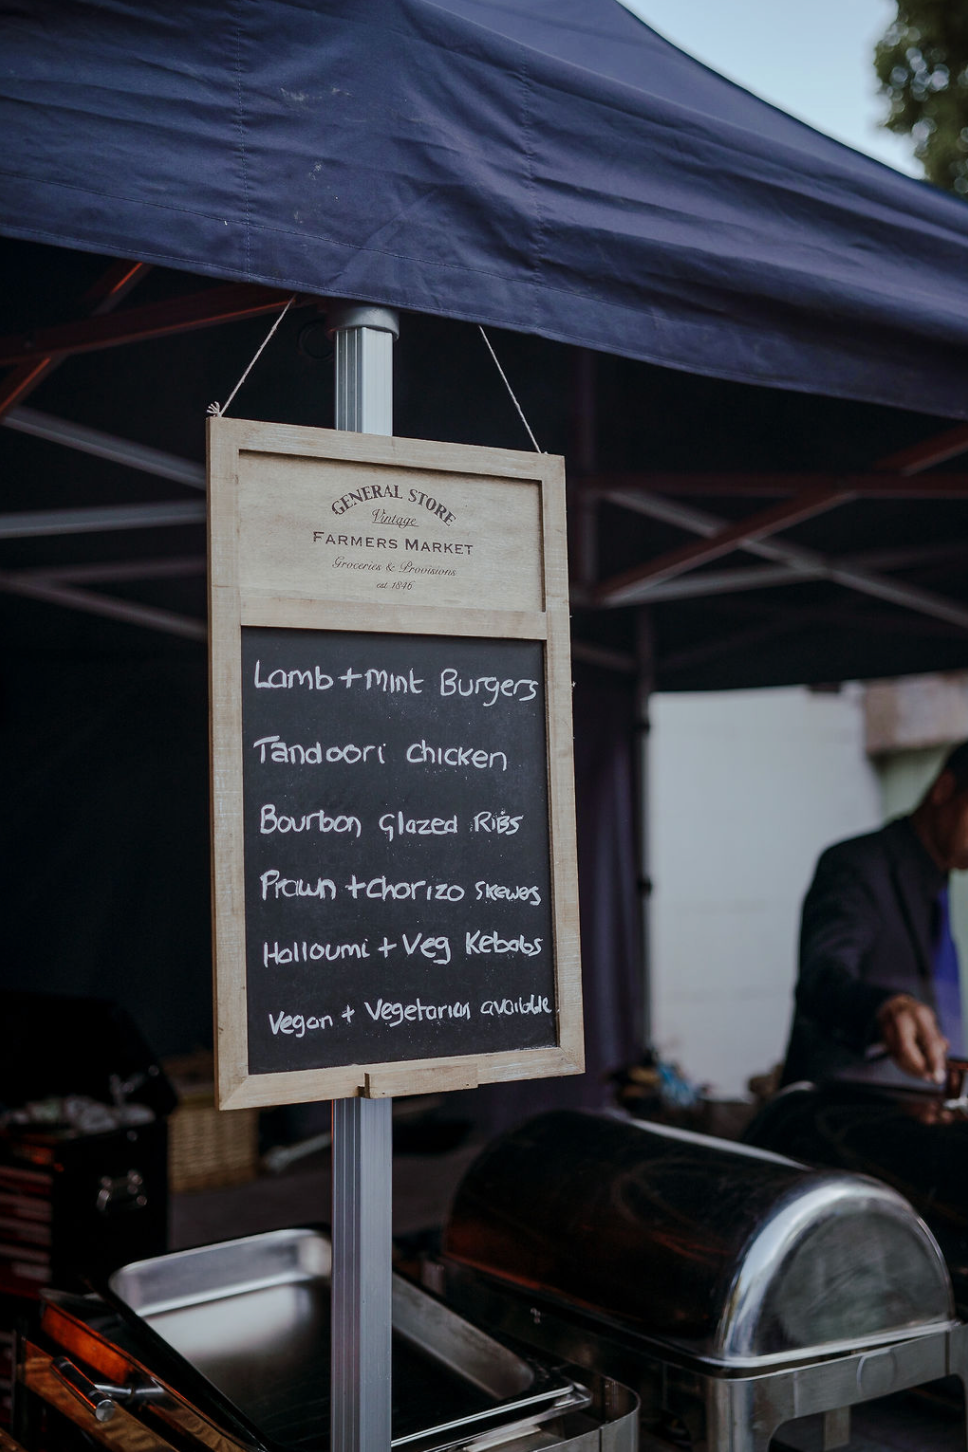 GENERAL STORE
Vintage
FARMERS MARKET
Groceries & Provisions
est. 1846
Lamb + Mint Burgers
Tandoori Chicken
Bourbon Glazed Ribs
Prawn + Chorizo Skewes
Halloumi + Veg Kebabs
Vegan + Vegetarian available